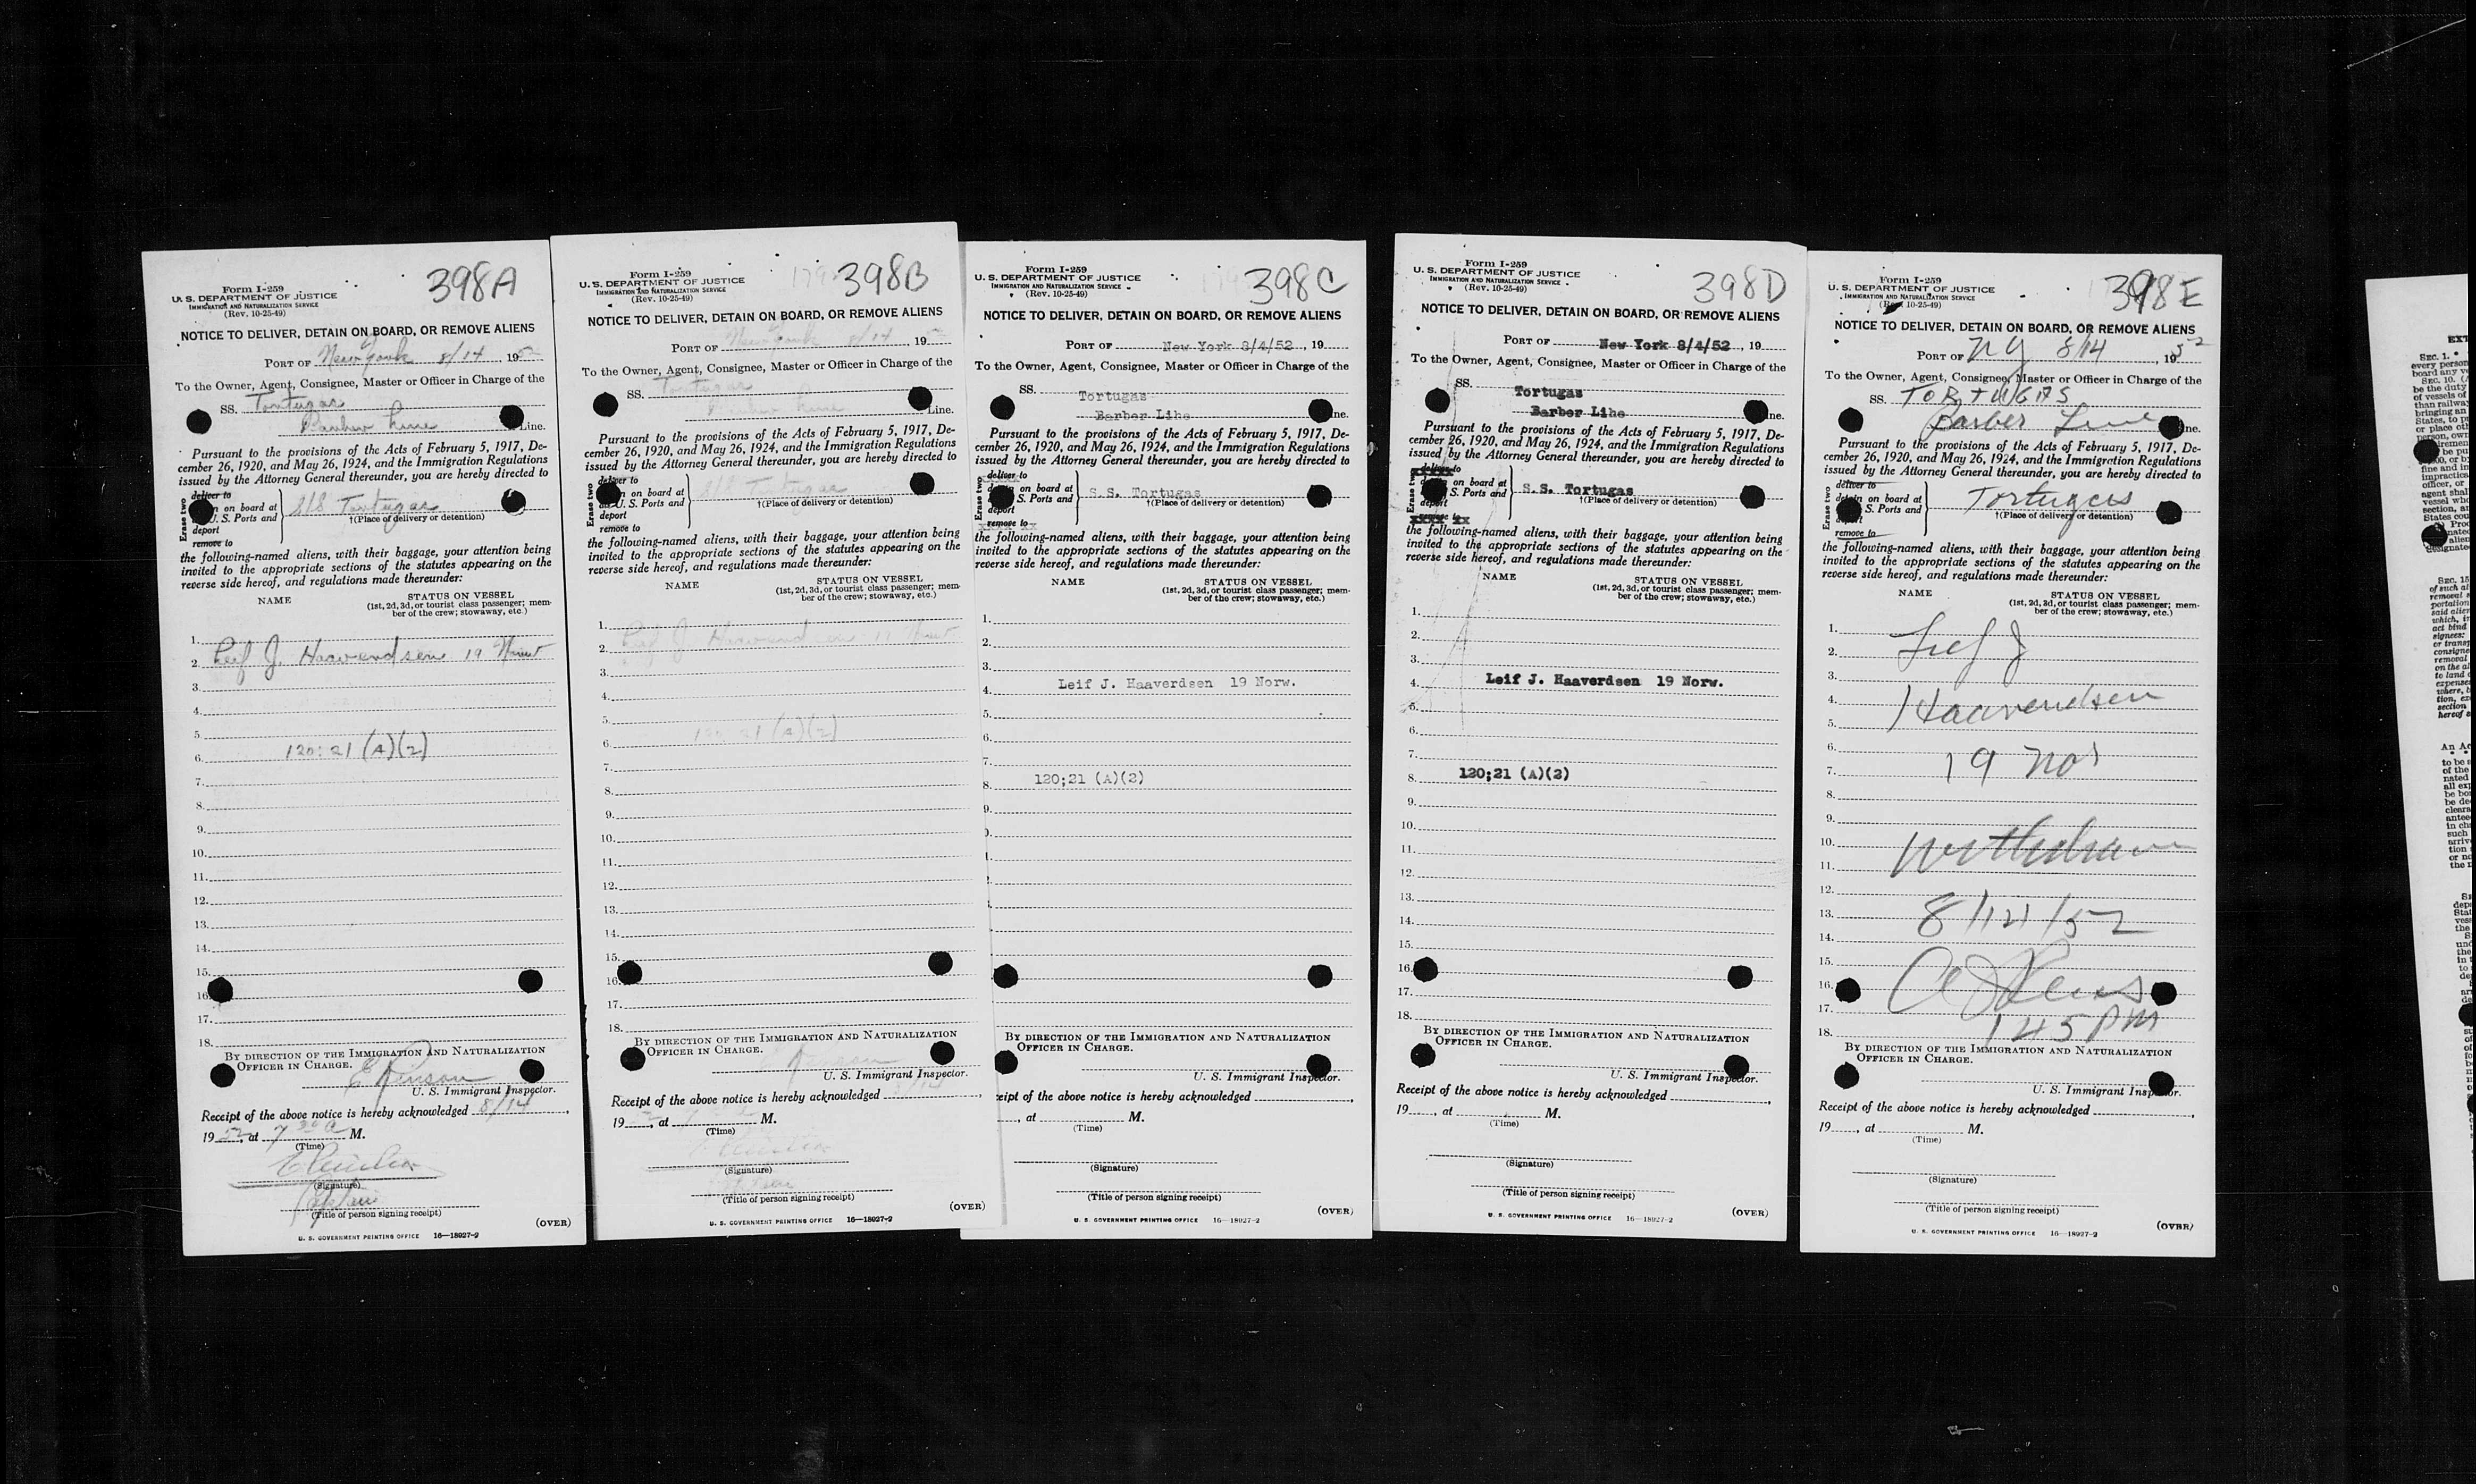 398A
Form I-259
U. S. DEPARTMENT OF JUSTICE
IMMIGRATION AND NATURALIZATION SERVICE
(Rev. 10-25-49)
NOTICE TO DELIVER, DETAIN ON BOARD, OR REMOVE ALIENS
PORT OF New York 8/14, 1952
To the Owner, Agent, Consignee, Master or Officer in Charge of the
SS. Tortugas
Barber Line Line.
Pursuant to the provisions of the Acts of February 5, 1917, De-
cember 26, 1920, and May 26, 1924, and the Immigration Regulations
issued by the Attorney General thereunder, you are hereby directed to
Erase two
deliver to
on board at
U. S. Ports and
deport
remove to
S/S Tortugas
†(Place of delivery or detention)
the following-named aliens, with their baggage, your attention being
invited to the appropriate sections of the statutes appearing on the
reverse side hereof, and regulations made thereunder:
NAME
STATUS ON VESSEL
(1st, 2d, 3d, or tourist class passenger; mem-
ber of the crew; stowaway, etc.)
1.
2. Leif J. Haavendsen 19
3.
4.
5.
6. 120:21 (A)(2)
7.
8.
9.
10.
11.
12.
13.
14.
15.
16.
17.
18.
BY DIRECTION OF THE IMMIGRATION AND NATURALIZATION
OFFICER IN CHARGE.
U. S. Immigrant Inspector.
Receipt of the above notice is hereby acknowledged 8/14,
1952, at 7 30 a M.
(Time)
(Signature)
(Title of person signing receipt)
(OVER)
U. S. GOVERNMENT PRINTING OFFICE 16—18927-2
398B
Form I-259
U. S. DEPARTMENT OF JUSTICE
IMMIGRATION AND NATURALIZATION SERVICE
(Rev. 10-25-49)
NOTICE TO DELIVER, DETAIN ON BOARD, OR REMOVE ALIENS
PORT OF New York 8/14, 19
To the Owner, Agent, Consignee, Master or Officer in Charge of the
SS. Tortugas
Barber Line Line.
Pursuant to the provisions of the Acts of February 5, 1917, De-
cember 26, 1920, and May 26, 1924, and the Immigration Regulations
issued by the Attorney General thereunder, you are hereby directed to
Erase two
deliver to
on board at
U. S. Ports and
deport
remove to
S/S Tortugas
†(Place of delivery or detention)
the following-named aliens, with their baggage, your attention being
invited to the appropriate sections of the statutes appearing on the
reverse side hereof, and regulations made thereunder:
NAME
STATUS ON VESSEL
(1st, 2d, 3d, or tourist class passenger; mem-
ber of the crew; stowaway, etc.)
1.
2. Leif J. Haavendsen 19
3.
4.
5.
6. 120:21 (A)(2)
7.
8.
9.
10.
11.
12.
13.
14.
15.
16.
17.
18.
BY DIRECTION OF THE IMMIGRATION AND NATURALIZATION
OFFICER IN CHARGE.
U. S. Immigrant Inspector.
Receipt of the above notice is hereby acknowledged 8/14,
19, at M.
(Time)
(Signature)
(Title of person signing receipt)
(OVER)
U. S. GOVERNMENT PRINTING OFFICE 16—18927-2
398C
Form I-259
U. S. DEPARTMENT OF JUSTICE
IMMIGRATION AND NATURALIZATION SERVICE
(Rev. 10-25-49)
NOTICE TO DELIVER, DETAIN ON BOARD, OR REMOVE ALIENS
PORT OF New York 8/4/52, 19
To the Owner, Agent, Consignee, Master or Officer in Charge of the
SS. Tortugas
Barber Lihe ne.
Pursuant to the provisions of the Acts of February 5, 1917, De-
cember 26, 1920, and May 26, 1924, and the Immigration Regulations
issued by the Attorney General thereunder, you are hereby directed to
Erase two
deliver to
on board at
S. Ports and
deport
remove to
S.S. Tortugas
†(Place of delivery or detention)
the following-named aliens, with their baggage, your attention being
invited to the appropriate sections of the statutes appearing on the
reverse side hereof, and regulations made thereunder:
NAME
STATUS ON VESSEL
(1st, 2d, 3d, or tourist class passenger; mem-
ber of the crew; stowaway, etc.)
1.
2.
3.
4. Leif J. Haaverdsen 19 Norw.
5.
6.
7.
8. 120;21 (A)(2)
9.
0.
1.
BY DIRECTION OF THE IMMIGRATION AND NATURALIZATION
OFFICER IN CHARGE.
U. S. Immigrant Inspector.
eipt of the above notice is hereby acknowledged
, at M.
(Time)
(Signature)
(Title of person signing receipt)
(OVER)
U. S. GOVERNMENT PRINTING OFFICE 16—18927-2
398D
Form I-259
U. S. DEPARTMENT OF JUSTICE
IMMIGRATION AND NATURALIZATION SERVICE
(Rev. 10-25-49)
NOTICE TO DELIVER, DETAIN ON BOARD, OR REMOVE ALIENS
PORT OF New York 8/4/52, 19
To the Owner, Agent, Consignee, Master or Officer in Charge of the
SS. Tortugas
Barber Lihe ne.
Pursuant to the provisions of the Acts of February 5, 1917, De-
cember 26, 1920, and May 26, 1924, and the Immigration Regulations
issued by the Attorney General thereunder, you are hereby directed to
Erase two
deliver to
on board at
S. Ports and
deport
remove to
S.S. Tortugas
†(Place of delivery or detention)
the following-named aliens, with their baggage, your attention being
invited to the appropriate sections of the statutes appearing on the
reverse side hereof, and regulations made thereunder:
NAME
STATUS ON VESSEL
(1st, 2d, 3d, or tourist class passenger; mem-
ber of the crew; stowaway, etc.)
1.
2.
3.
4. Leif J. Haaverdsen 19 Norw.
5.
6.
7.
8. 120;21 (A)(2)
9.
10.
11.
12.
13.
14.
15.
16.
17.
18.
BY DIRECTION OF THE IMMIGRATION AND NATURALIZATION
OFFICER IN CHARGE.
U. S. Immigrant Inspector.
Receipt of the above notice is hereby acknowledged
19, at M.
(Time)
(Signature)
(Title of person signing receipt)
(OVER)
U. S. GOVERNMENT PRINTING OFFICE 16—18927-2
398E
Form I-259
U. S. DEPARTMENT OF JUSTICE
IMMIGRATION AND NATURALIZATION SERVICE
(Rev. 10-25-49)
NOTICE TO DELIVER, DETAIN ON BOARD, OR REMOVE ALIENS
PORT OF NY 8/14, 1952
To the Owner, Agent, Consignee, Master or Officer in Charge of the
SS. TORTUGAS
Barber Line ne.
Pursuant to the provisions of the Acts of February 5, 1917, De-
cember 26, 1920, and May 26, 1924, and the Immigration Regulations
issued by the Attorney General thereunder, you are hereby directed to
Erase two
deliver to
on board at
S. Ports and
deport
remove to
Tortugas
†(Place of delivery or detention)
the following-named aliens, with their baggage, your attention being
invited to the appropriate sections of the statutes appearing on the
reverse side hereof, and regulations made thereunder:
NAME
STATUS ON VESSEL
(1st, 2d, 3d, or tourist class passenger; mem-
ber of the crew; stowaway, etc.)
1.
2. Leif J
3.
4.
5. Haavendsen
6.
7. 19 Nor
8.
9.
10.
11. Withdrawn
12.
13.
14. 8/14/52
15.
16.
17.
18. 145 PM
BY DIRECTION OF THE IMMIGRATION AND NATURALIZATION
OFFICER IN CHARGE.
U. S. Immigrant Inspector.
Receipt of the above notice is hereby acknowledged
19, at M.
(Time)
(Signature)
(Title of person signing receipt)
(OVER)
U. S. GOVERNMENT PRINTING OFFICE 16—18927-2